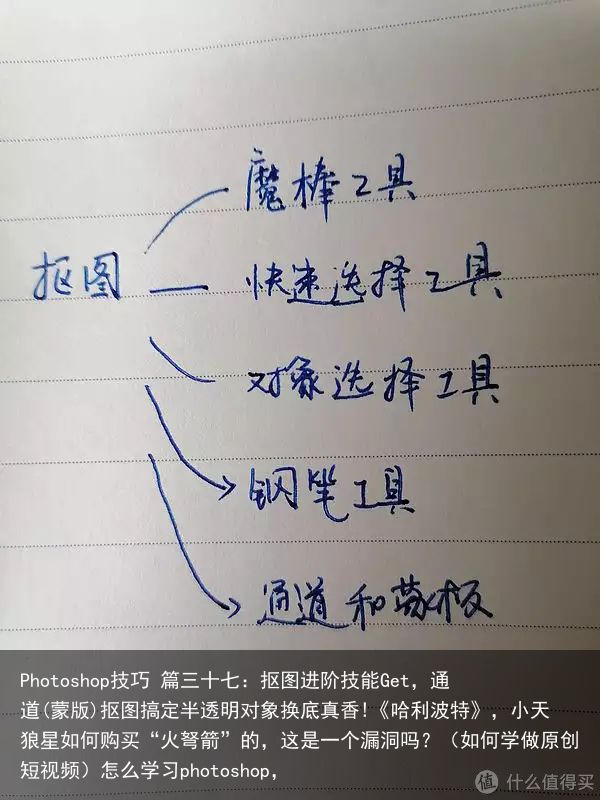 魔棒工具
抠图
快速选择工具
对象选择工具
钢笔工具
通道和蒙板
Photoshop技巧 篇三十七：抠图进阶技能Get，通
道(蒙版)抠图搞定半透明对象换底真香!《哈利波特》，小天
狼星如何购买“火弩箭”的，这是一个漏洞吗？（如何学做原创
短视频）怎么学习photoshop，
值 什么值得买